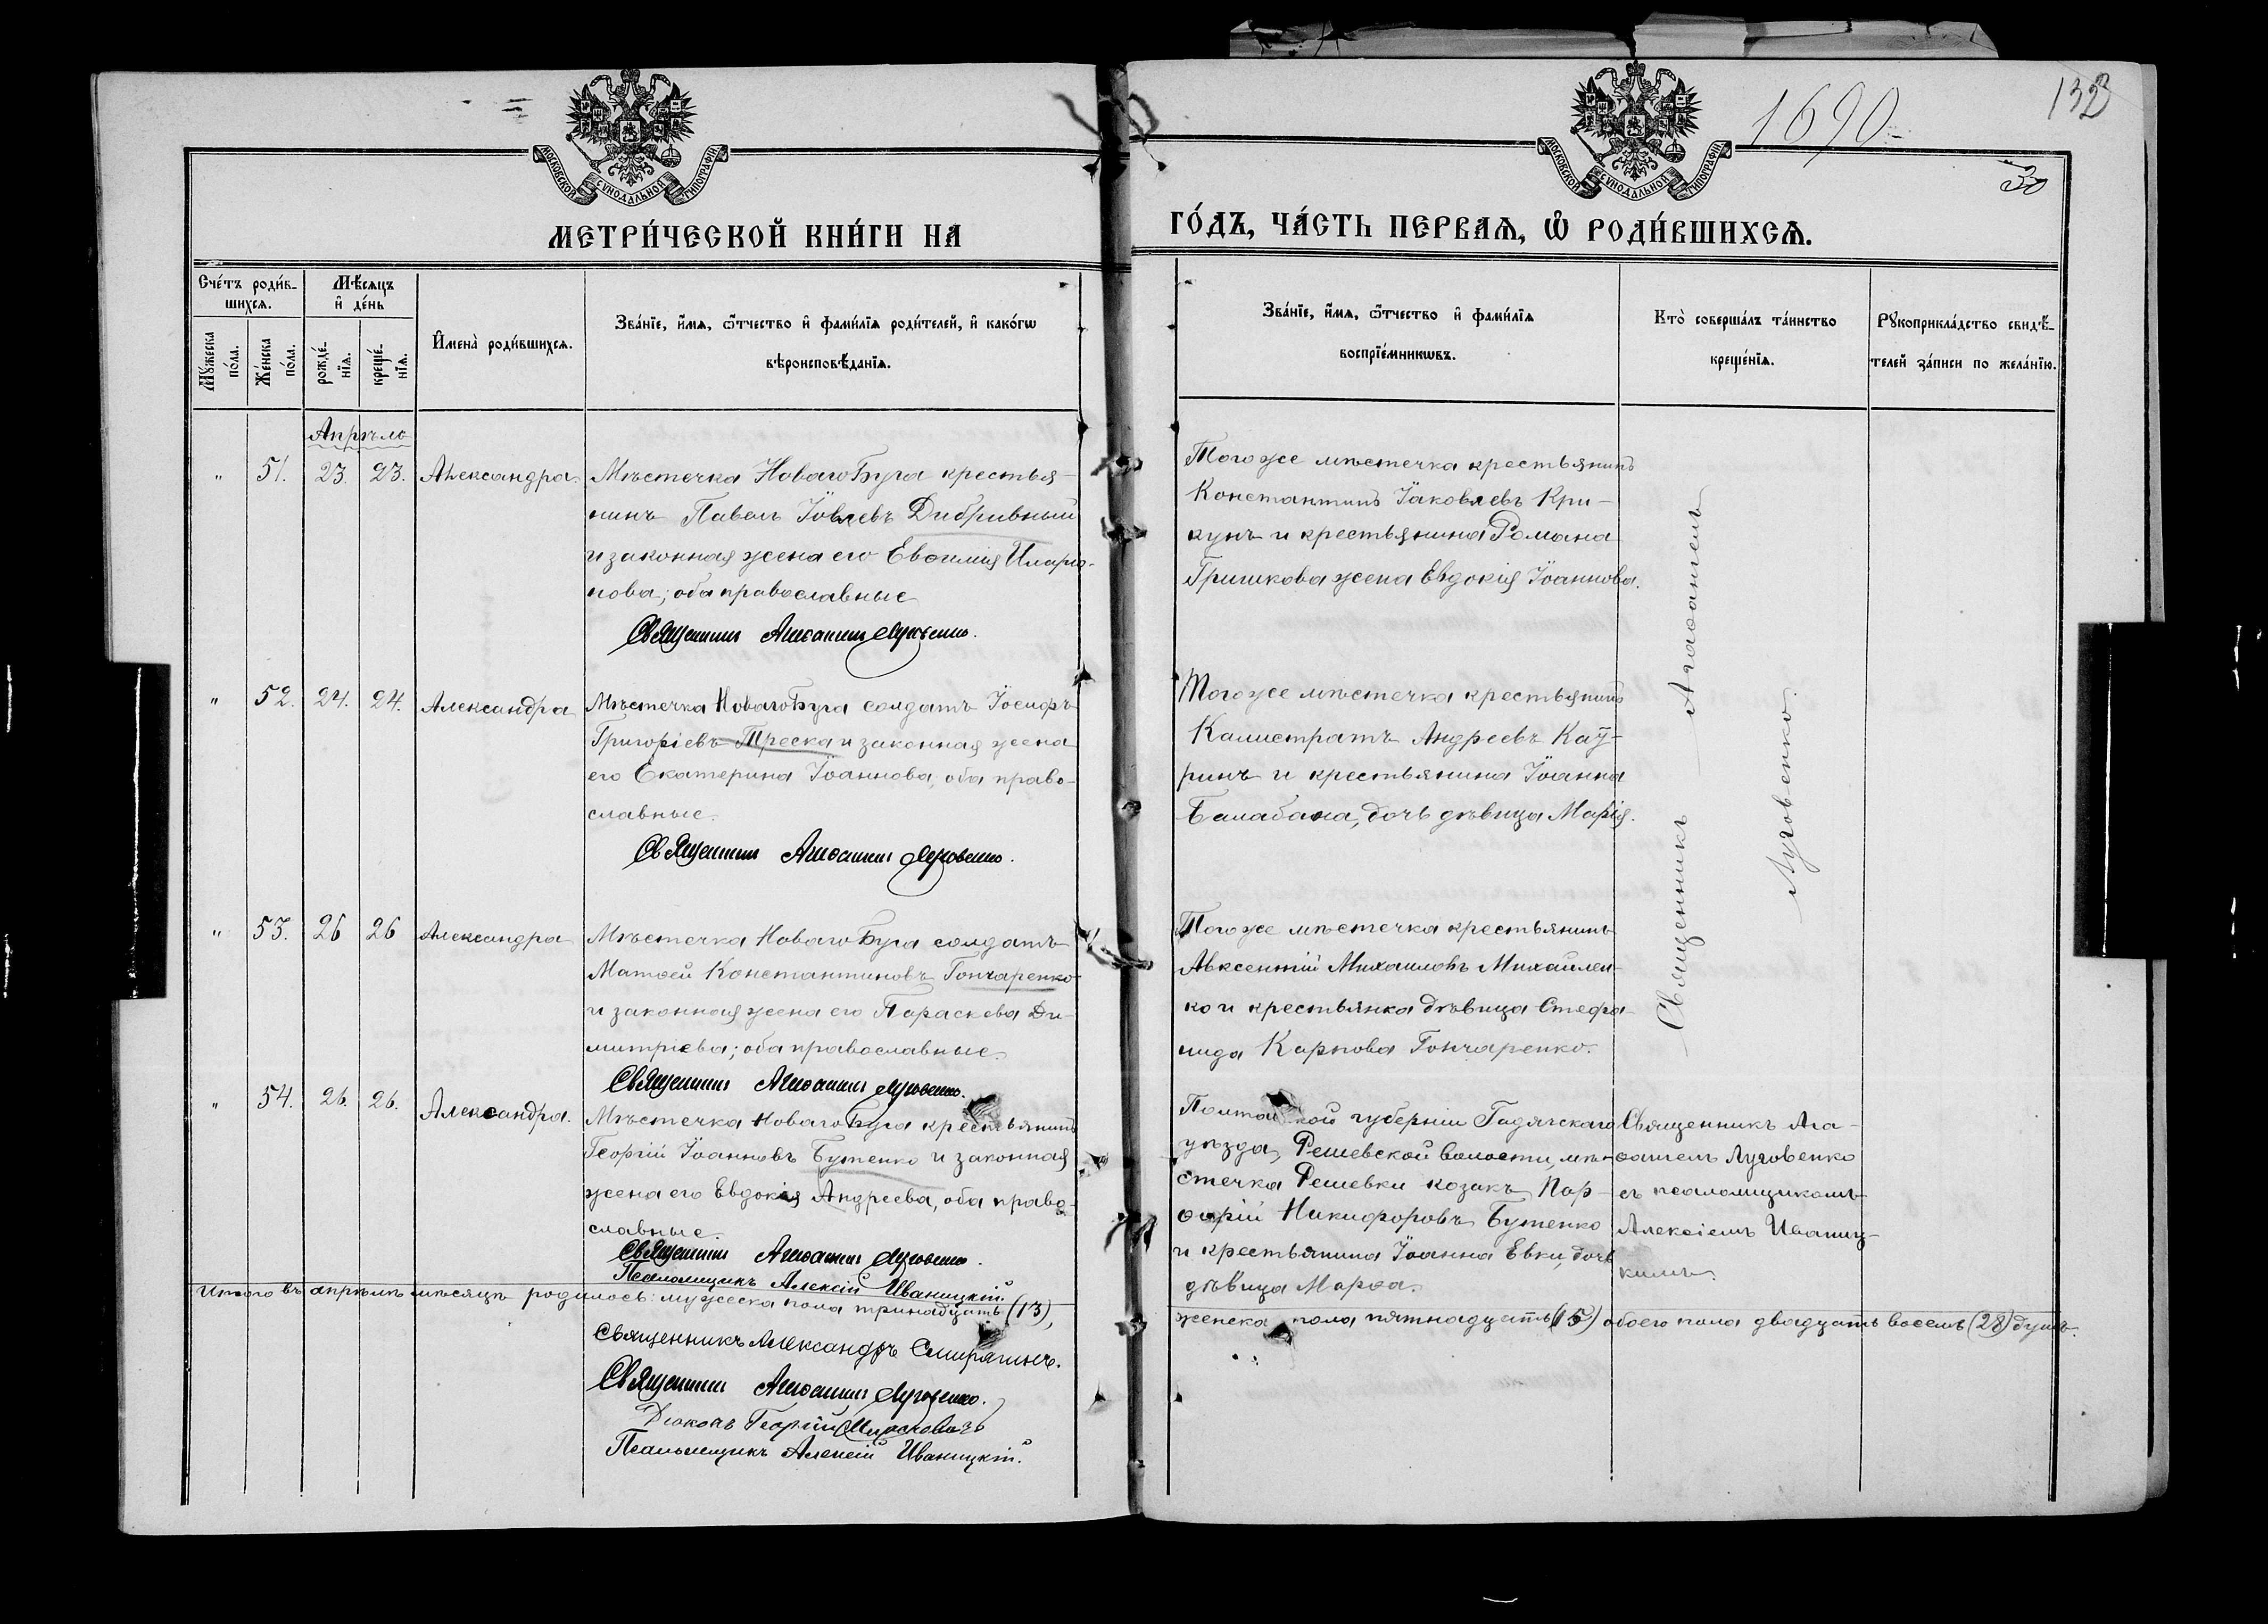 1690
132
30
МОСКОВСКОЙ СѴНОДАЛЬНОЙ ТИПОГРАФІИ
МОСКОВСКОЙ СѴНОДАЛЬНОЙ ТИПОГРАФІИ
МЕТРИ́ЧЕСКОЙ КНИ́ГИ НА
ГО́ДЪ, ЧА́СТЬ ПЕРВАѦ, Ѿ РОДИ́ВШИХСѦ.
Сче́тъ роди́в-
шихсѧ.
Мꙋжеска по́ла.
Же́нска по́ла.
Мѣ́сяцъ
и҆ де́нь
рожде́-
нїѧ.
креще́-
нїѧ.
И҆мена̀ роди́вшихсѧ.
Зва́нїе, и҆́мѧ, ѿтчество и҆ фами́лїѧ роди́телей, и҆ како́гѡ
вѣроисповѣ́данїѧ.
Зва́нїе, и҆́мѧ, ѿтчество и҆ фами́лїѧ
воспрїе́мникѡвъ.
Кто̀ соверша́лъ та́инство
креще́нїѧ.
Рꙋкоприкла́дство свидѣ́-
телей за́писи по жела́нїю.
Апрѣль
" 51. 23. 23. Александра
Мѣстечка Новаго Буга крестья-
нинъ Павелъ Іовлевъ Дибривный
и законная жена его Евѳимія Иларіо-
нова; оба православные
Священникъ Агаѳангелъ Луговенко.
Того же мѣстечка крестьянинъ
Константинъ Іаковлевъ Кри-
кунъ и крестьянина Романа
Гришкова жена Евдокія Іоаннова.
" 52. 24. 24. Александра
Мѣстечка Новаго Буга солдатъ Іосифъ
Григоріевъ Треска и законная жена
его Екатерина Іоаннова, оба право-
славные.
Священникъ Агаѳангелъ Луговенко.
Того же мѣстечка крестьянинъ
Калистратъ Андреевъ Кау-
ринъ и крестьянина Іоанна
Балабана, дочь дѣвица Марія.
" 53. 26 26 Александра
Мѣстечка Новаго Буга солдатъ
Матѳей Константиновъ Гончаренко
и законная жена его Параскева Ди-
митріева; оба православные.
Священникъ Агаѳангелъ Луговенко.
Того же мѣстечка крестьянинъ
Авксентій Михаиловъ Михайлен-
ко и крестьянка дѣвица Стефа-
нида Карпова Гончаренко.
Священникъ Агаѳангелъ
Луговенко.
" 54. 26. 26. Александра.
Мѣстечка Новаго Буга крестьянинъ
Георгій Іоанновъ Бутенко и законная
жена его Евдокія Андреева, оба право-
славные.
Священникъ Агаѳангелъ Луговенко.
Псаломщикъ Алексій Иваницкій.
Полтавской губерніи Гадячскаго
уѣзда, Решевской волости, мѣ-
стечка Решевки козакъ Пор-
фирій Никифоровъ Бутенко
и крестьянина Іоанна Евки, дочь
дѣвица Марѳа.
Священникъ Ага-
ѳангелъ Луговенко
съ псаломщикомъ
Алексіемъ Иваниц-
кимъ.
Итого въ апрѣлѣ мѣсяцѣ родилось: мужеска пола тринадцать (13),
женска пола пятнадцать (15) обоего пола двадцать восемь (28) душъ.
Священникъ Александръ Смирягинъ.
Священникъ Агаѳангелъ Луговенко.
Діаконъ Георгій
Псаломщикъ Алексій Иваницкій.